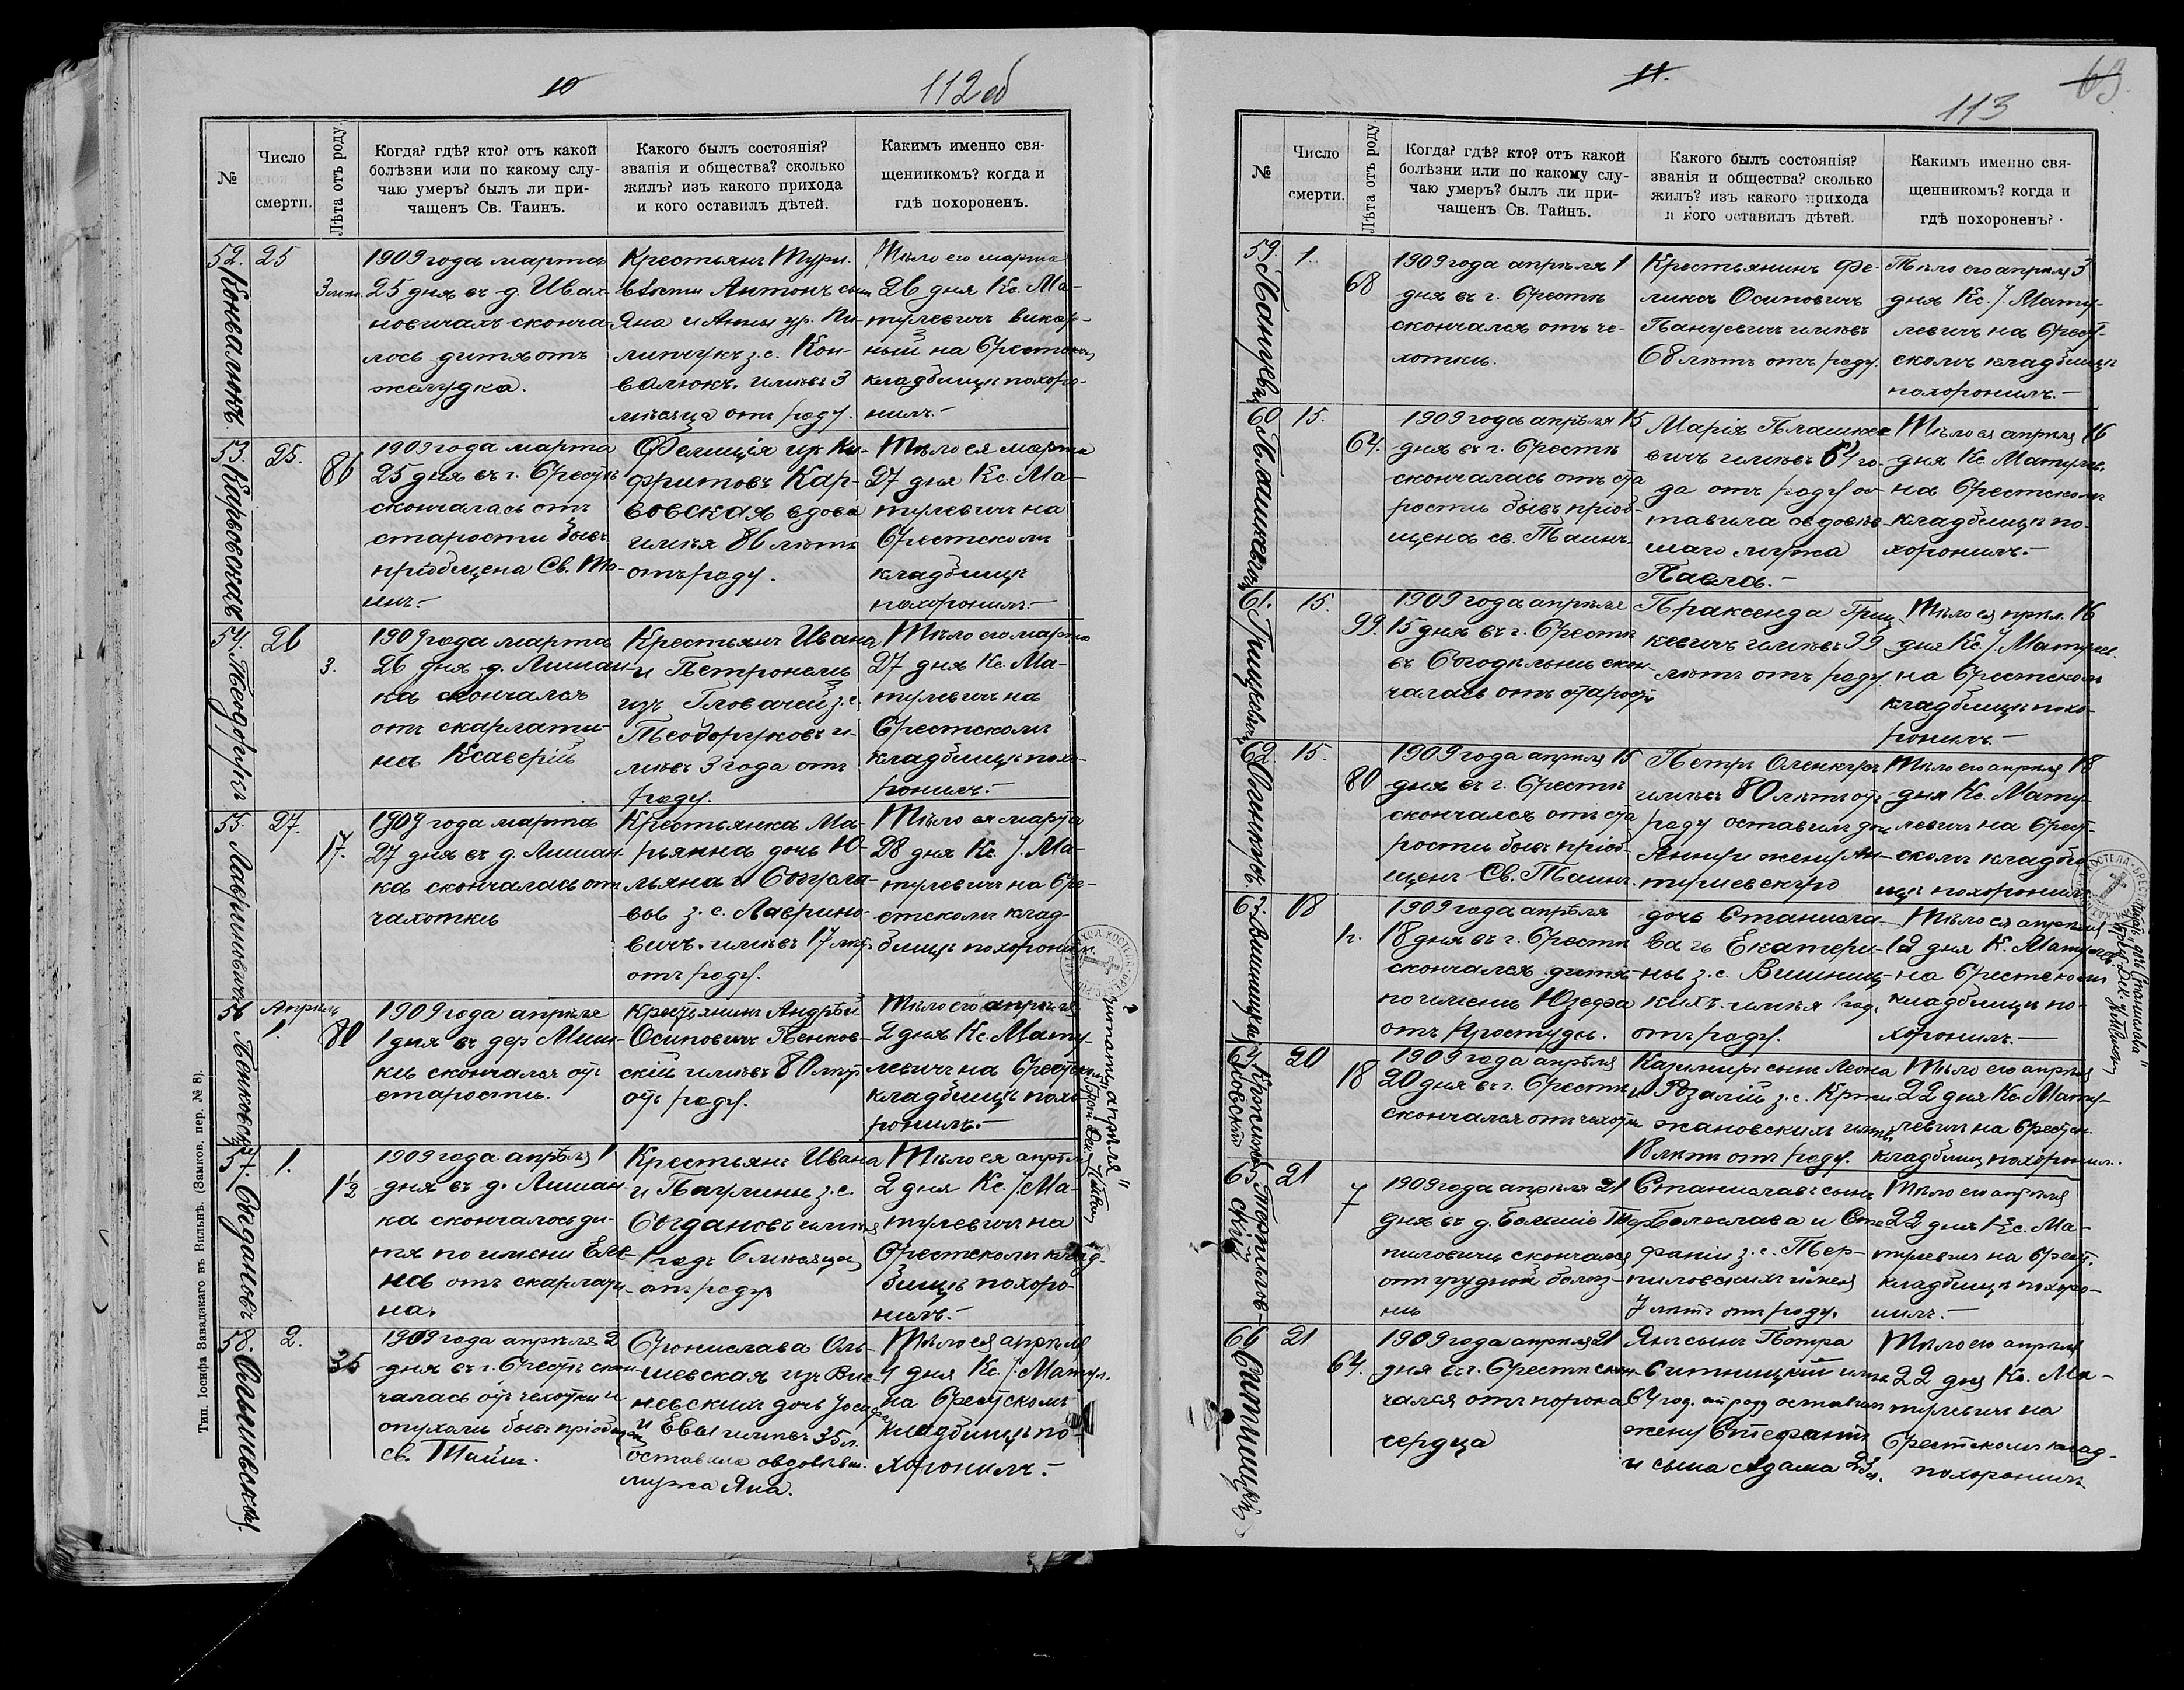 10
112 об
№
Число
смерти.
Лѣта отъ роду.
Когда? гдѣ? кто? отъ какой
болѣзни или по какому слу-
чаю умеръ? былъ ли при-
чащенъ Св. Таинъ.
Какого былъ состоянія?
званія и общества? сколько
жилъ? изъ какого прихода
и кого оставилъ дѣтей.
Какимъ именно свя-
щенникомъ? когда и
гдѣ похороненъ.
52.
Конвалюкъ.
25
1909 года марта
25 дня въ д. Ивах-
новичахъ сконча
лось дитя отъ
желудка.
Крестьянъ
Антонъ сынъ
Яна и Анны ур.
з. с. Кон-
валюкъ. имѣвъ 3
мѣсяца отъ роду.
Тѣло его марта
26 дня Кс. Ма-
тулевичъ викар-
ный на Брестском
кладбищѣ похоро-
нилъ.-
53.
Карвовская
25.
86
1909 года марта
25 дня въ г. Брестѣ
скончалась отъ
старости бывъ
пріобщена Св. Та-
инъ.-
Фелиція изъ
Кар-
вовская вдова
имѣя 86 лѣтъ
отъ роду.
Тѣло ея марта
27 дня Кс. Ма-
тулевичъ на
Брестскомъ
кладбищѣ
похоронилъ.-
54.
Теодорукъ
26
3.
1909 года марта
26 дня д. Лишан-
ка скончался
отъ скарлати-
на Ксаверій
Крестьянъ Ивана
и Петронели
изъ Головачей з. с.
Теодоруковъ и-
мѣвъ 3 года отъ
роду.
Тѣло его марта
27 дня Кс. Ма-
тулевичъ на
Брестскомъ
кладбищѣ похо-
ронилъ.-
55.
Лавриновичъ
27.
17.
1909 года марта
27 дня въ д. Лишан-
ка скончалась отъ
чахотки
Крестьянка Ма-
рьянна дочь Ю-
льяна и Богусла-
вы з. с. Лаврино-
вичъ. имѣвъ 17 лѣт.
отъ роду.
Тѣло ея марта
28 дня Кс. J. Ма-
тулевичъ на Бре-
стскомъ клад-
бищѣ похоронилъ.
56
Пенковскій
Апрѣль
1.
80
1909 года апрѣля
1 дня въ дер
скончался отъ
старости.
Крестьянинъ Андрѣй
Осиповичъ Пенков-
скій имѣвъ 80 лѣтъ
отъ роду.
Тѣло его апрѣля
2 дня Кс. Мату-
левичъ на Брестском
кладбищѣ похо-
ронилъ.-
57.
Богдановъ
1.
1½
1909 года апрѣля 1
дня въ д. Лишан-
ка скончалось ди-
тя по имени Еле-
на отъ скарлати-
на.
Крестьянъ Ивана
и Паулины з. с.
Богдановъ имѣя
1 годъ 6 мѣсяцевъ
отъ роду
Тѣло ея апрѣля
2 дня Кс. J. Ма-
тулевичъ на
Брестскомъ клад-
бищѣ похоро-
нилъ.-
58.
Ольшевская.
2.
35
1909 года апрѣля 2
дня въ г. Брестѣ скон-
чалась отъ чахотки и
опухоли бывъ пріобщен
св. Таинъ.
Бронислава Оль-
шевская изъ Вис-
невскихъ дочь Іосифа
и Евы имѣвъ 35 л.
оставила овдовѣвш.
мужа Яна.
Тѣло ея апрѣля
4 дня Кс. J. Матул.
на Брестскомъ
кладбищѣ по-
хоронилъ.-
читать „апрѣля"
Тип. Іосифа Завадзкаго въ Вильнѣ. (Замков. пер. № 8).
11.
63
113
№
Число
смерти.
Лѣта отъ роду.
Когда? гдѣ? кто? отъ какой
болѣзни или по какому слу-
чаю умеръ? былъ ли при-
чащенъ Св. Тайнъ.
Какого былъ состоянія?
званія и общества? сколько
жилъ? изъ какого прихода
и кого оставилъ дѣтей.
Какимъ именно свя-
щенникомъ? когда и
гдѣ похороненъ?
59.
1.
68
1909 года апрѣля 1
дня въ г. Брестѣ
скончался отъ че-
хотки.
Крестьянинъ Фе-
ликсъ Осиповичъ
имѣвъ
68 лѣтъ отъ роду.
Тѣло его апрѣля 3
дня Кс. J. Мату-
левичъ на Брест-
скомъ кладбищѣ
похоронилъ.-
60
Плашкевичъ
15.
64.
1909 года апрѣля 15
дня въ г. Брестѣ
скончалась отъ ста
рости бывъ пріоб-
щена св. Таинъ.
Марія Плашке
вичъ имѣвъ 64 го-
да отъ роду ос-
тавила овдовѣв-
шаго мужа
Павла.-
Тѣло ея апрѣля 16
дня Кс. Матулев.
на Брестскомъ
кладбищѣ по-
хоронилъ.-
61.
Грицкевичъ
15.
99.
1909 года апрѣля
15 дня въ г. Брестѣ
въ Богодѣльнѣ скон-
чалась отъ старости
Праксенда Гриц-
кевичъ имѣвъ 99
лѣтъ отъ роду.
Тѣло ея апрл. 16
дня Кс. J. Матулев.
на Брестском
кладбищѣ похо-
ронилъ.-
62.
15.
80
1909 года апрѣля 15
дня въ г. Брестѣ
скончался отъ ста
рости бывъ пріоб-
щенъ Св. Таинъ.
Петръ
имѣвъ 80 лѣтъ отъ
роду оставилъ дочь
Анну и жену Ан-
Тѣло его апрѣля 18
дня Кс. Мату-
левичъ на Брест-
скомъ кладби-
щѣ похоронилъ
63.
Вишницкая
18
1 г.
1909 года апрѣля
18 дня въ г. Брестѣ
скончался дитя
по имени Юзефа
отъ простуды.
дочь Станисла-
ва и Екатери-
ны з. с. Вишниц-
кихъ. имѣя 1 год.
отъ роду.
Тѣло ея апрѣля
дня К. Матулев.
на Брестскомъ
кладбищѣ по-
хоронилъ.-
64
20
18
1909 года апрѣля
20 дня въ г. Брестѣ
скончался отъ чахотки
Казимиръ сынъ Леона
и Розаліи з. с. Кржи
жановскихъ имѣв.
18 лѣтъ отъ роду.
Тѣло его апрѣля
22 дня Кс. Мату-
левичъ на Брестск.
кладбищ похоронил.
65
Терпиловскій
21
7
1909 года апрѣля 21
дня въ д. Большіе
скончался
отъ грудной болѣз-
ни
Станиславъ сынъ
Болеслава и Сте
фаніи з. с. Тер-
пиловскихъ имѣя
7 лѣтъ отъ роду.
Тѣло его апрѣля
22 дня Кс. Ма-
тулевичъ на Брест.
кладбищѣ похоро-
нилъ.-
66
Ситницкій
21
64.
1909 года апрѣля 21
дня въ г. Брестѣ скон-
чался отъ порока
сердца
Янъ сынъ Петра
Ситницкій имѣв
64 год. отъ роду оставилъ
жену Стефанію
и сына Адама 23 л.
Тѣло его апрѣля
22 дня Кс. Ма-
тулевичъ на
Брестскомъ клад-
похоронилъ